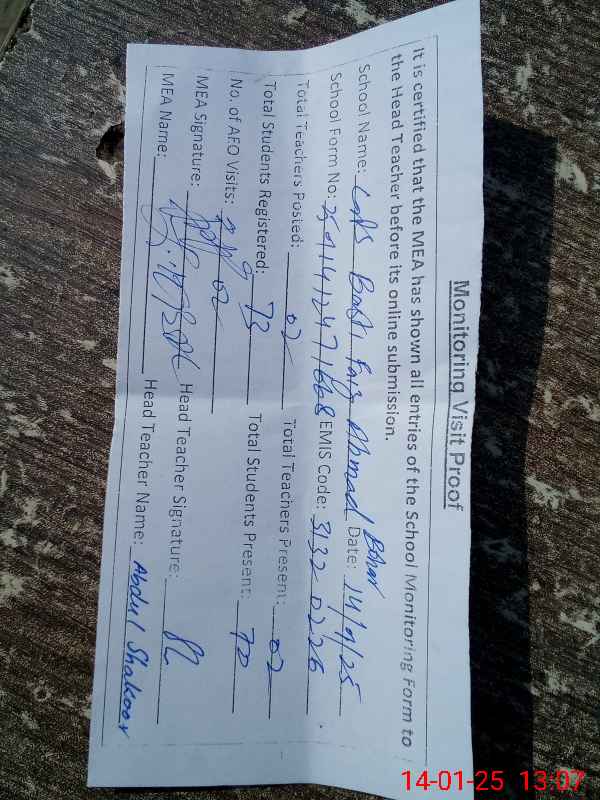 Monitoring Visit Proof
It is certified that the MEA has shown all entries of the School Monitoring Form to
the Head Teacher before its online submission.
School Name: Basti Faiz Ahmad Bohar Date:
School Form No: EMIS Code: 31320226
Total Teachers Posted: 02 Total Teachers Present: 02
Total Students Registered: 73 Total Students Present: 70
No. of AEO Visits: 02
MEA Signature: Head Teacher Signature:
MEA Name: Head Teacher Name: Abdul Shakoor
14-01-25 13:07